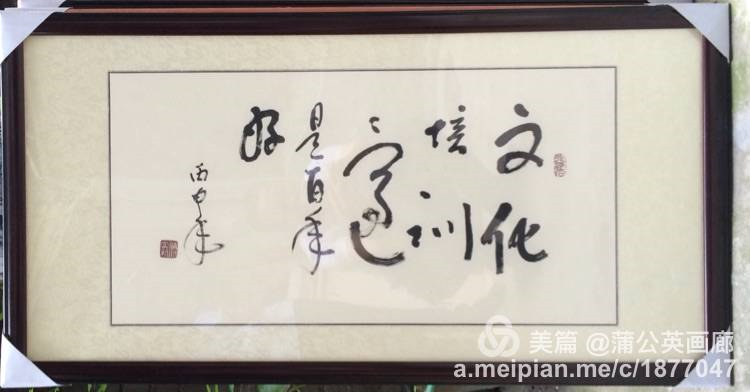 文化
培训
是百年
好
丙申年
美篇 @蒲公英画廊
a.meipian.me/c/1877047